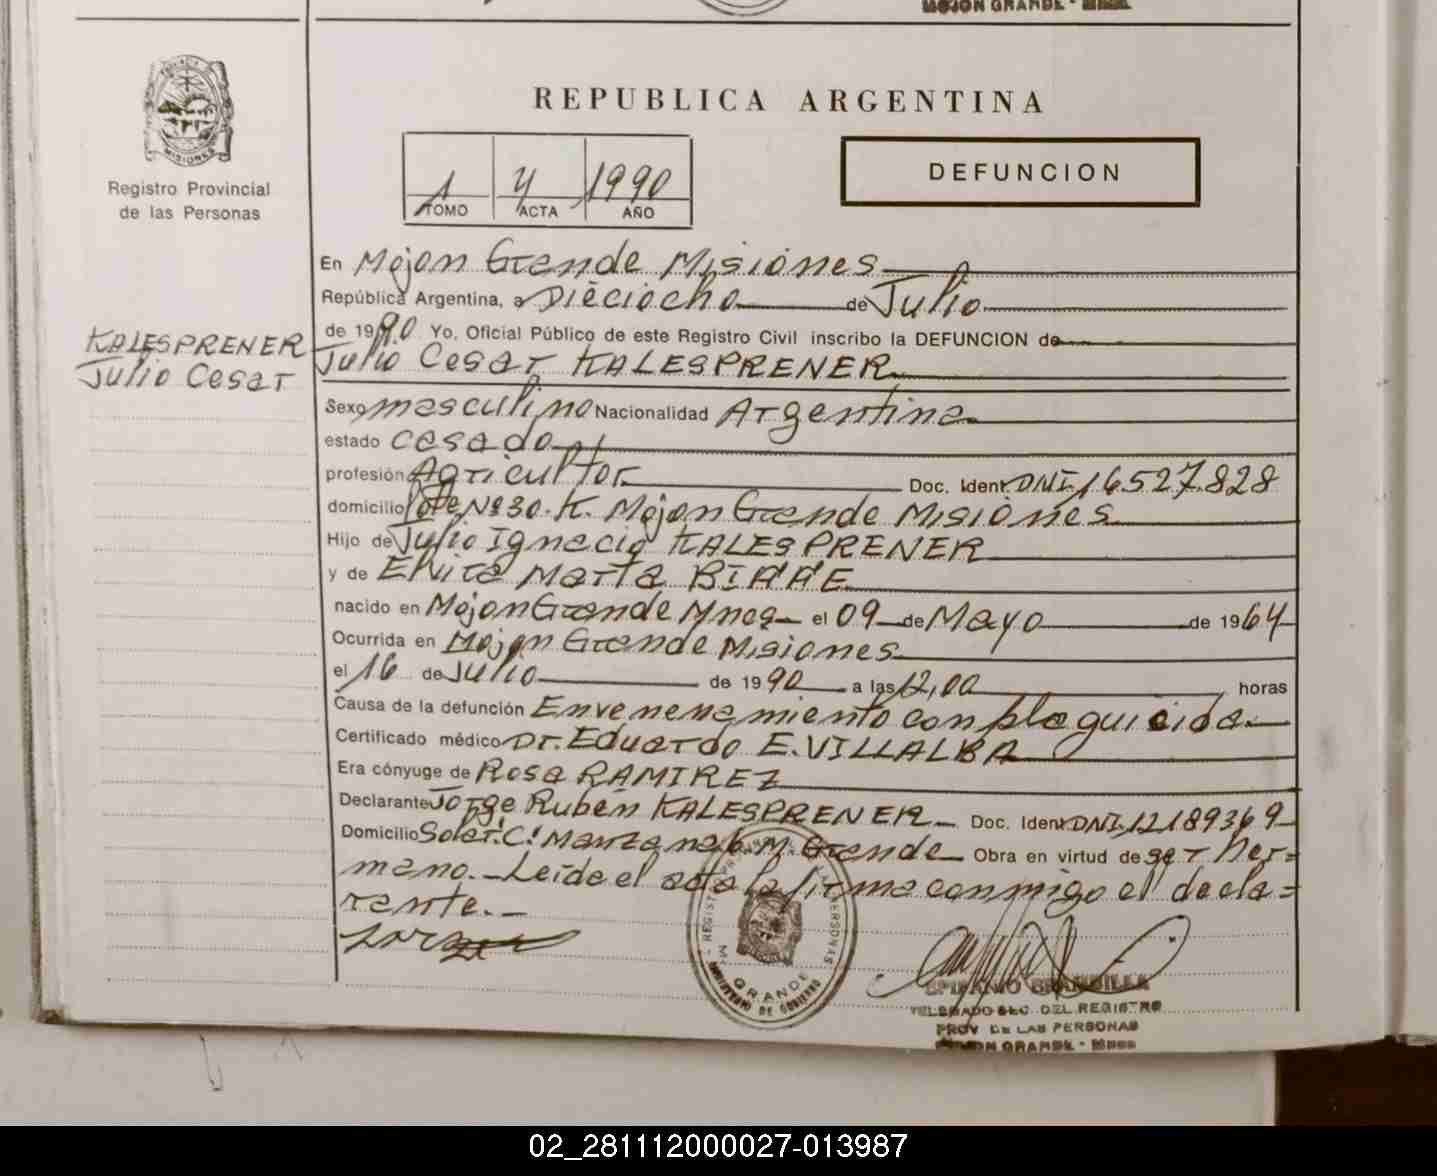 MOJON GRANDE - Mnes.
REPUBLICA ARGENTINA
MISIONES
Registro Provincial
de las Personas
1 4 1990
TOMO ACTA AÑO
DEFUNCION
En Mojon Grande Misiones
República Argentina, a Dieciocho de Julio
de 1990 Yo, Oficial Público de este Registro Civil inscribo la DEFUNCION de
KALESPRENER
Julio Cesar
Julio Cesar KALESPRENER
Sexo masculino Nacionalidad Argentina
estado casado
profesión Agricultor Doc. Ident. DNI. 16.527.828
domicilio Lote Nº 30. K. Mojon Grande Misiones
Hijo de Julio Ignacio KALESPRENER
y de Marta
nacido en Mojon Grande Mnes el 09 de Mayo de 1964
Ocurrida en Mojon Grande Misiones
el 16 de Julio de 1990 a las 12,00 horas
Causa de la defunción Envenenamiento con plaguicida
Certificado médico Dr. Eduardo E. VILLALBA
Era cónyuge de Rosa RAMIREZ
Declarante Jorge Rubén KALESPRENER Doc. Ident. DNI. 12189369
Domicilio Solar: C: Manzana 6 M. Grande Obra en virtud de ser her=
mano. Leída el acta la firma conmigo el decla=
rante.
REGISTRO PERSONAS
M. GRANDE
MINISTERIO DE GOBIERNO
DELEGADO SEC. DEL REGISTRO
PROV DE LAS PERSONAS
MOJON GRANDE - Mnes
02_281112000027-013987